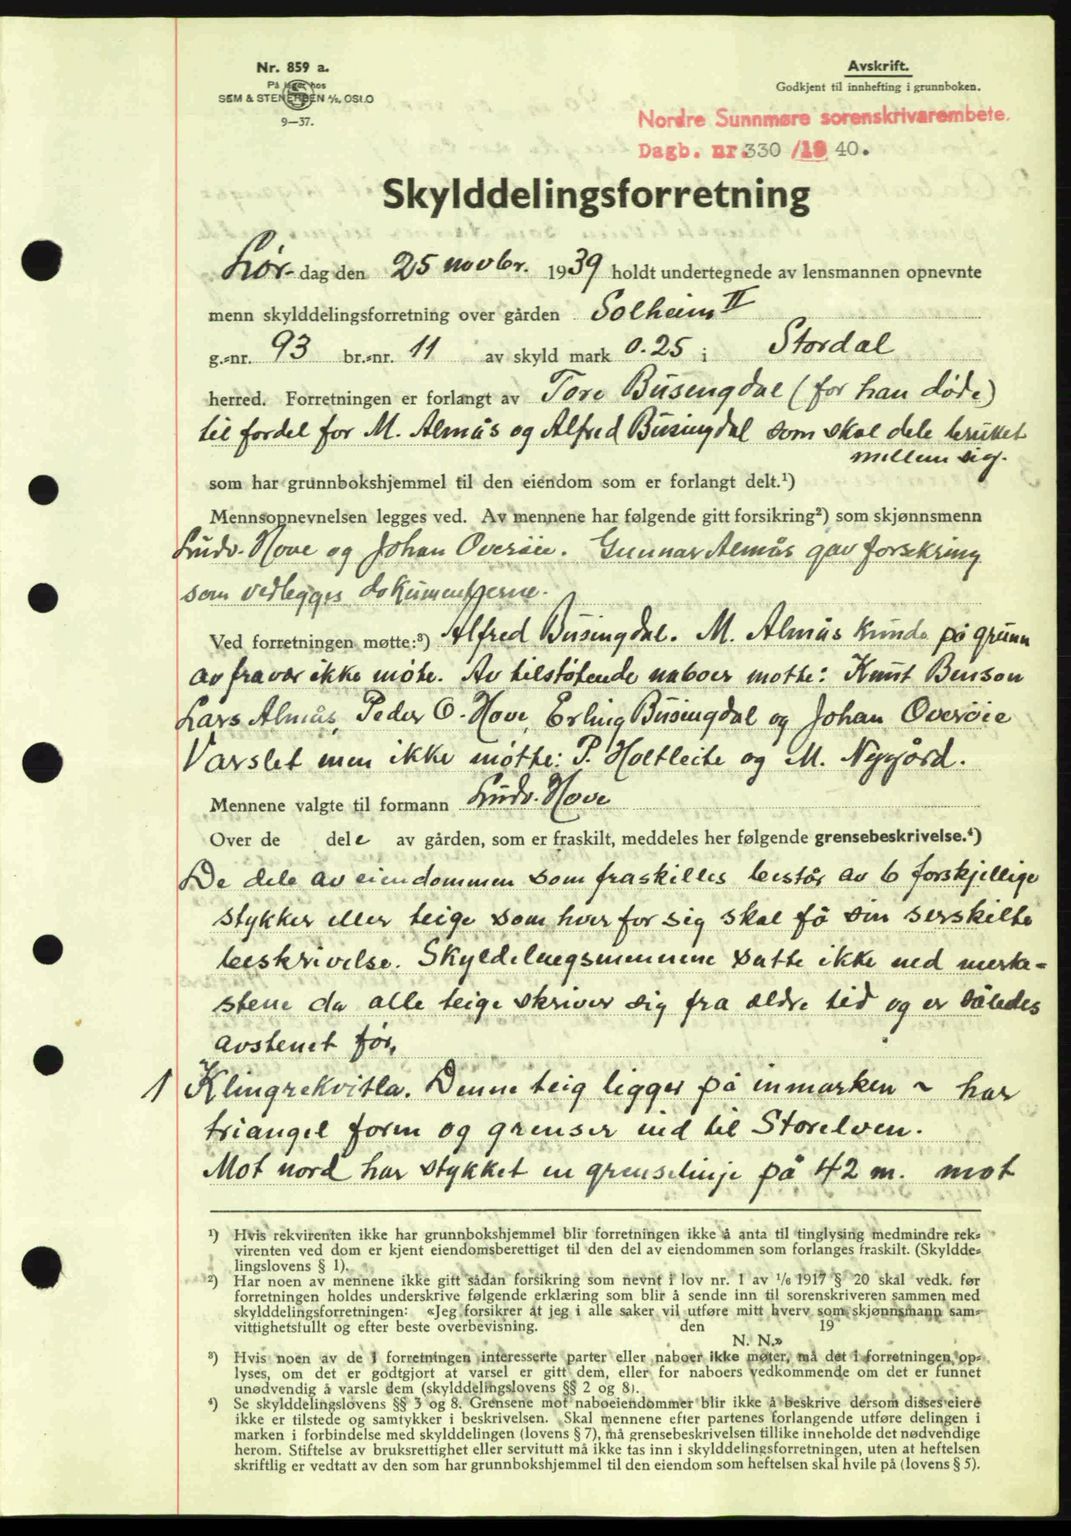 Nr. 859 a.
På lager hos
SEM & STENERSEN A/S, OSLO
9—37.
Avskrift.
Godkjent til innhefting i grunnboken.
Nordre Sunnmøre sorenskrivarembete.
Dagb. nr. 330 /19 40.
Skylddelingsforretning
Lør- dag den 25 novbr. 1939 holdt undertegnede av lensmannen opnevnte
menn skylddelingsforretning over gården Solheim II
g.-nr. 93 br.-nr. 11 av skyld mark 0.25 i Stordal
herred. Forretningen er forlangt av Tore Busengdal (for han døde)
til fordel for M. Almås og Alfred Busingdal som skal dele bruket
mellem sig.
som har grunnbokshjemmel til den eiendom som er forlangt delt.¹)
Mennsopnevnelsen legges ved. Av mennene har følgende gitt forsikring²) som skjønnsmenn
Ludv. Hove og Johan Overøie. Gunnar Almås gav forsikring
som vedlegges dokumenterne.
Ved forretningen møtte:³) Alfred Busingdal. M. Almås kunde på grunn
av fravær ikke møte. Av tilstøtende naboer møtte: Knut Benson
Lars Almås, Peder O. Hove, Erling Busingdal og Johan Overøie
Varslet men ikke møtte: P. Holtleite og M. Nygård.
Mennene valgte til formann Ludv. Hove
Over de dele av gården, som er fraskilt, meddeles her følgende grensebeskrivelse.⁴)
De dele av eiendommen som fraskilles består av 6 forskjellige
stykker eller teige som hver for sig skal få sin serskilte
beskrivelse. Skyldelingsmennene satte ikke ned merke-
stene da alle teige skriver sig fra ældre tid og er således
avstenet før.
1 Klingrekvitla. Denne teig ligger på inmarken ~ har
triangel form og grenser ind til Storelven.
Mot nord har stykket en grenselinje på 42 m. mot
¹) Hvis rekvirenten ikke har grunnbokshjemmel blir forretningen ikke å anta til tinglysing medmindre rek-
virenten ved dom er kjent eiendomsberettiget til den del av eiendommen som forlanges fraskilt. (Skyldde-
lingslovens § 1).
²) Har noen av mennene ikke gitt sådan forsikring som nevnt i lov nr. 1 av 1/6 1917 § 20 skal vedk. før
forretningen holdes underskrive følgende erklæring som blir å sende inn til sorenskriveren sammen med
skylddelingsforretningen: «Jeg forsikrer at jeg i alle saker vil utføre mitt hverv som skjønnsmann sam-
vittighetsfullt og efter beste overbevisning. den 19
N. N.»
³) Hvis noen av de i forretningen interesserte parter eller naboer ikke møter, må det i forretningen op-
lyses, om det er godtgjort at varsel er gitt dem, eller for naboers vedkommende om det er funnet
unødvendig å varsle dem (skylddelingslovens §§ 2 og 8).
⁴) Se skylddelingslovens §§ 3 og 8. Grensene mot naboeiendommer blir ikke å beskrive dersom disses eiere
ikke er tilstede og samtykker i beskrivelsen. Skal mennene efter partenes forlangende utføre delingen i
marken i forbindelse med skylddelingen (lovens § 7), må grensebeskrivelsen tillike inneholde det nødvendige
herom. Stiftelse av bruksrettighet eller servitutt må ikke tas inn i skylddelingsforretningen, uten at heftelsen
skriftlig er vedtatt av den som har grunnbokshjemmel til den eiendom som heftelsen skal hvile på (lovens § 5).